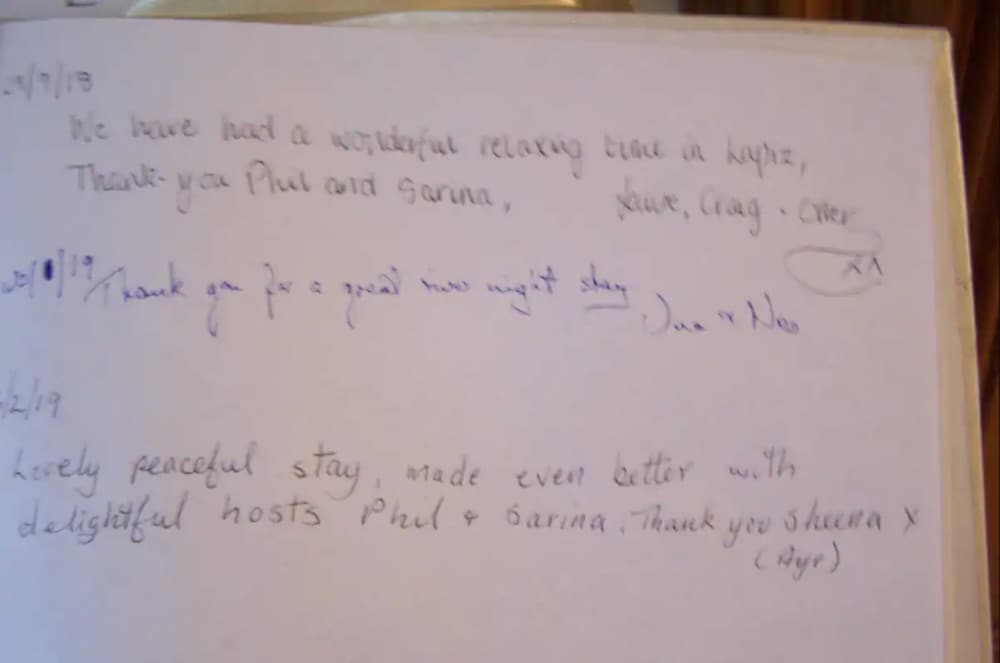 /9/18
We have had a wonderful relaxing time in
Thank-you Phil and Sarina,
Craig
/19 Thank you for a great night stay
/2/19
Lovely peaceful stay, made even better with
delightful hosts Phil & Sarina. Thank you Sheena X
(Ayr)